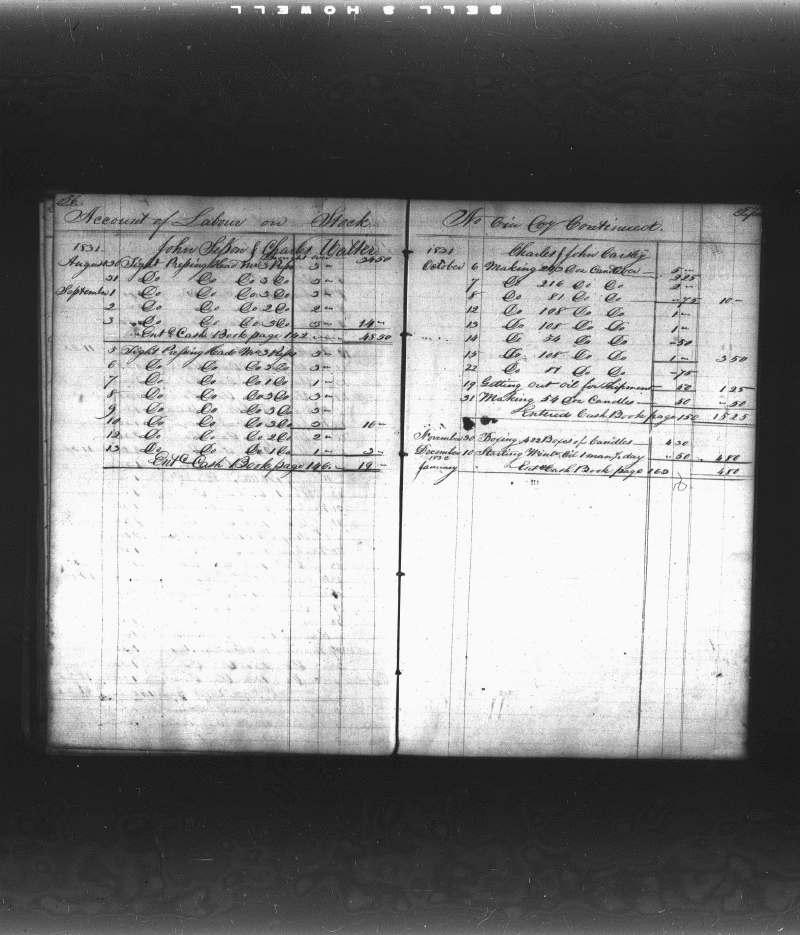 BELL & HOWELL
Account of Labour on Stock
1831 John Sisson & Charles Walter
Brought over 3450
August 30 Tight Pressing Head Mr 3 3 "
31 Do Do Do 3 Do 3 "
September 1 Do Do Do 3 Do 3 "
2 Do Do Do 2 Do 2 "
3 Do Do Do 3 Do 3 " 14 "
Entd Cash Book page 142 48 50
5 Tight Pressing Head 3 3 "
6 Do Do Do 3 Do 3 "
7 Do Do Do 1 Do 1 "
8 Do Do Do 3 Do 3 "
9 Do Do Do 3 Do 3 "
10 Do Do Do 3 Do 3 16 "
12 Do Do Do 2 Do 2 "
13 Do Do Do 1 Do 1 " 3 "
Entd Cash Book page 146 19 "
No Continued.
1831 Charles & John
October 6 Making Candles
7 Do 216 Do Do 2 "
8 Do 81 Do Do " 75 10 "
12 Do 108 Do Do 1 "
13 Do 108 Do Do 1 "
14 Do 54 Do Do " 50
15 Do 108 Do Do 1 " 3 50
22 Do 81 Do Do " 75
19 Getting out oil for Shipment 50 1 25
31 Making 54 Candles 50 " 50
Entered Cash Book page 150 15 25
November 30 Boxing 432 Boxes of Candles 4 30
December 10 Starting Winter Oil 1 man ½ day " 50 4 80
1832
January Entd Cash Book page 163 4 80